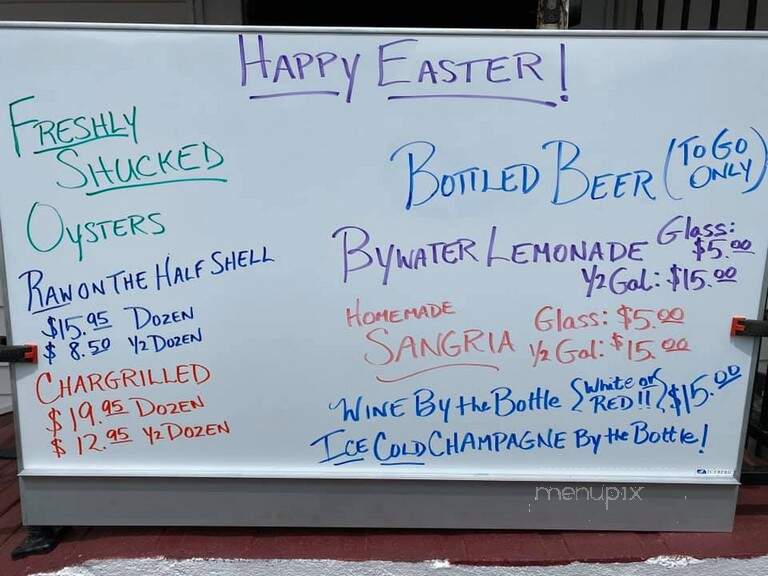 HAPPY EASTER!
FRESHLY
SHUCKED
OYSTERS
RAW ON THE HALF SHELL
$15.95 DOZEN
$8.50 1/2 DOZEN
CHARGRILLED
$19.95 DOZEN
$12.95 1/2 DOZEN
BOTTLED BEER (TO GO
ONLY)
BYWATER LEMONADE Glass:
$5.00
1/2 Gal: $15.00
HOMEMADE
SANGRIA
Glass: $5.00
1/2 Gal: $15.00
WINE By the Bottle {White or
RED!!} $15.00
ICE COLD CHAMPAGNE By the Bottle!
menupix